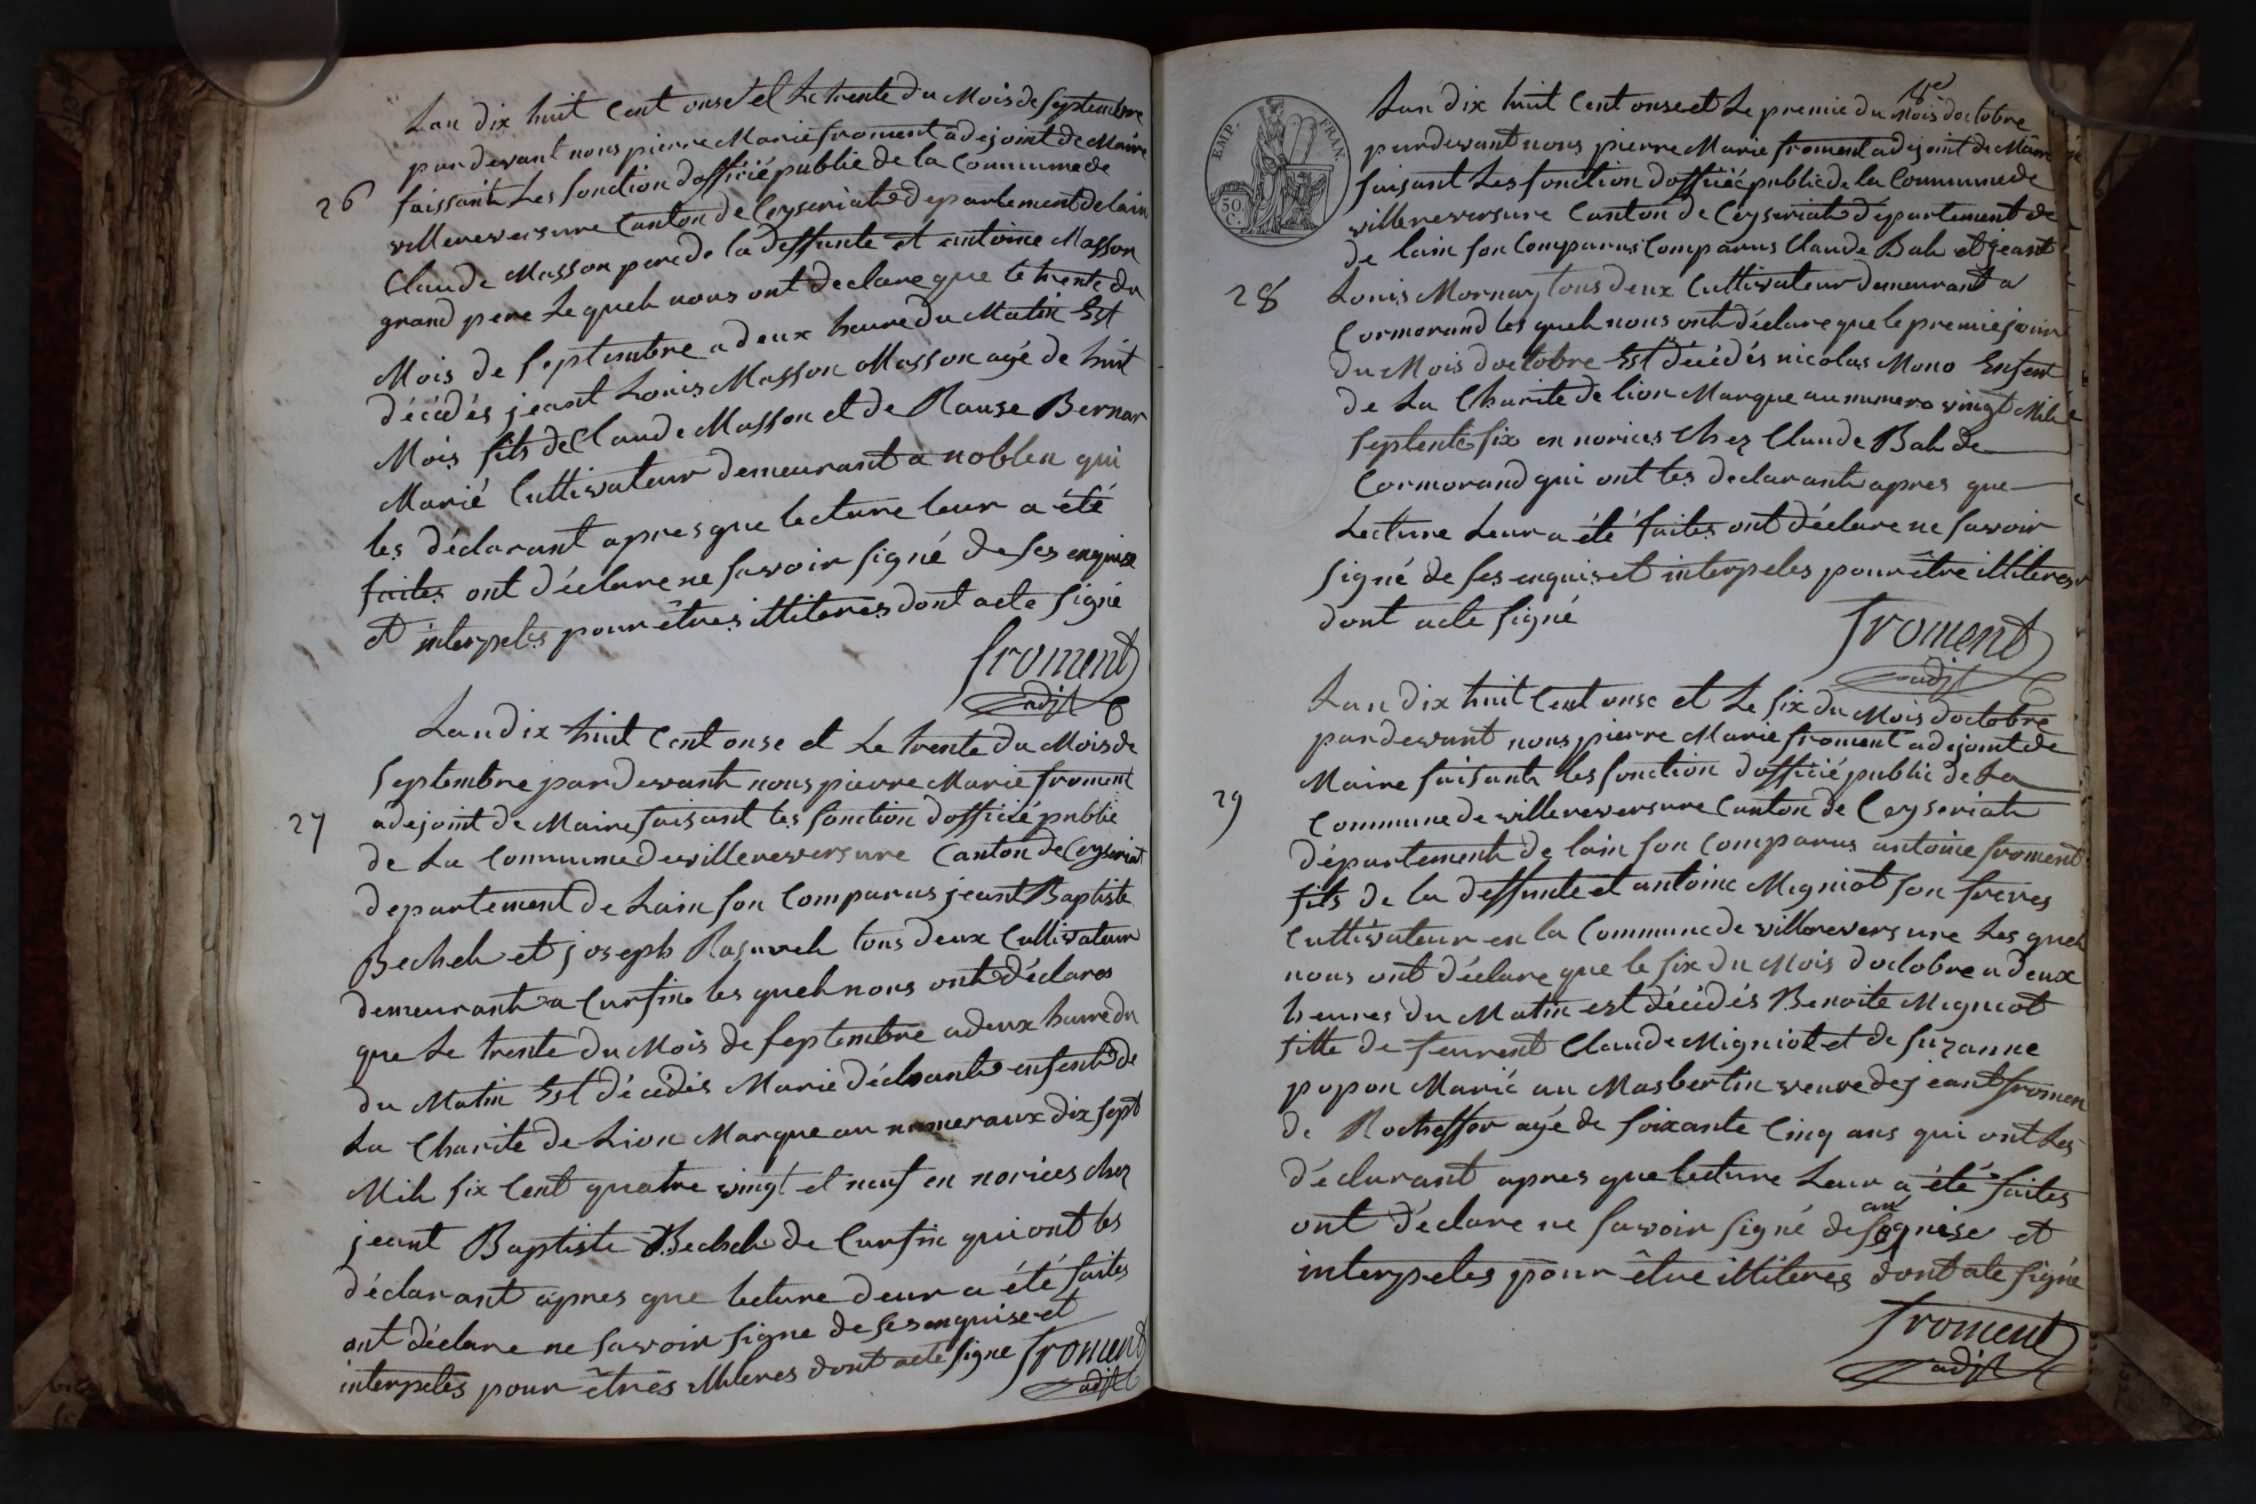 Lan dix huit Cent onse et Le trente du Mois de Septembre
pardevant nous pierre Marie froment adejoint de Maire
26
faissant Les fonction dofficié public de la Commune de
villereversure Canton de Ceyseriat departement de lain
Claude Masson pere de la deffunte et antoine Masson
grand pere Le queh nous ont declare que le trente du
Mois de Septembre a deux heure du Matin Est
décédés jeant Louis Masson Masson agé de huit
Mois fils de Claude Masson et de Rause Bernar
Marié Cultivateur demeurant a noblen qui
les déclarant apres que lecture leur a été
faites ont déclare ne savoir signé de ses enquise
et interpelés pour êtres illiteres dont acte signé
froment
adjt
Lan dix huit Cent onse et Le trente du Mois de
Septembre pardevant nous pierre Marie froment
27
adejoint de Maire faisant les fonction dofficié public
de La Commune de villereversure Canton de Ceyseriat
departement de Lain son Comparus jeant Baptiste
Becheh et joseph Rasureh tous deux Cultivateur
demeurant a Curfin les queh nous ont déclares
que Le trente du Mois de Septembre a deux heure du
du Matin Est décédés Marie enfent de
La Charite de Lion Marque au numeraux dix sept
Mih six Cent quatre vingt et neuf en norices chez
jeant Baptiste Becheh de Curfin qui ont les
déclarant apres que lecture deur a été faites
ont déclare ne savoir signe de ses enquise et
interpelés pour êtres illiteres dont acte signe froment
adjt
EMP. FRAN.
50 C.
Lan dix huit Cent onse et Le premie du Mois doctobre
pardevant nous pierre Marie froment adejoint de Maire
faisant Les fonction dofficié public de la Commune de
villereversure Canton de Ceyseriat département de
de lain son Comparus Comparus Claude Bah et jeant
28
Louis Mornay tous deux Cultivateur demeurant a
Cormorand les queh nous ont déclare que le premie jour
du Mois doctobre Est décédés nicolas Mono Enfent
de La Charite de lion Marque au numero vingt Mih
septente six en norices Chez Claude Bah de
Cormorand qui ont les declarant apres que
Lecture Leur a été faites ont déclare ne savoir
signé de ses enquis et interpeles pour être illiteres
dont acte signé
froment
adjt
Lan dix huit Cent onse et Le six du Mois doctobre
pardevant nous pierre Marie froment adejoint de
Maire faisant les fonction dofficié public de La
29
Commune de villereversure Canton de Ceyseriat
département de lain son Comparus antoine froment
fils de la deffunte et antoine Migniot son freres
Cultivateur en la Commune de villereversure Les queh
nous ont déclare que le six du Mois doctobre a deux
heures du Matin est décédés Benoite Migniot
fille de feurent Claude Migniot et de Suzanne
popon Marié au Masbertin veuve de jeant fromen
de Rocheffor agé de soixante Cinq ans qui ont Les
déclarant apres que lecture Leur a été faites
ont déclare ne savoir signé de ses enquise et
interpeles pour être illiteres dont ate signé
froment
adjt